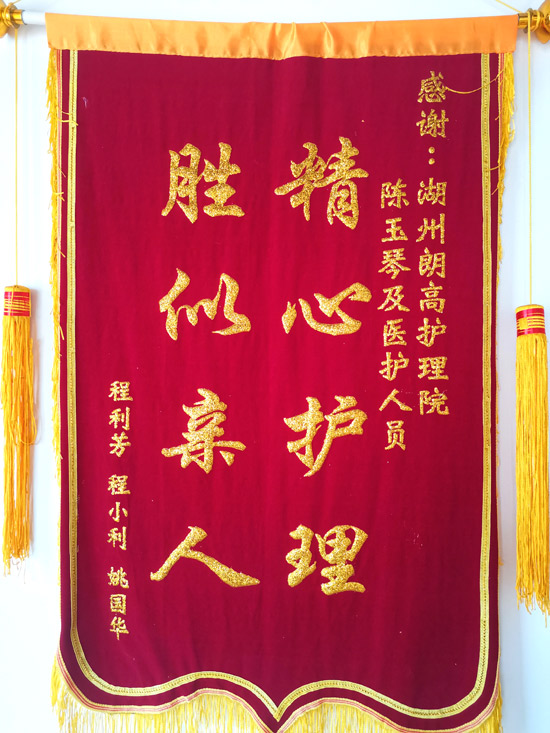 感谢：湖州朗高护理院
陈玉琴及医护人员
精心护理
胜似亲人
程利芳 程小利 姚国华